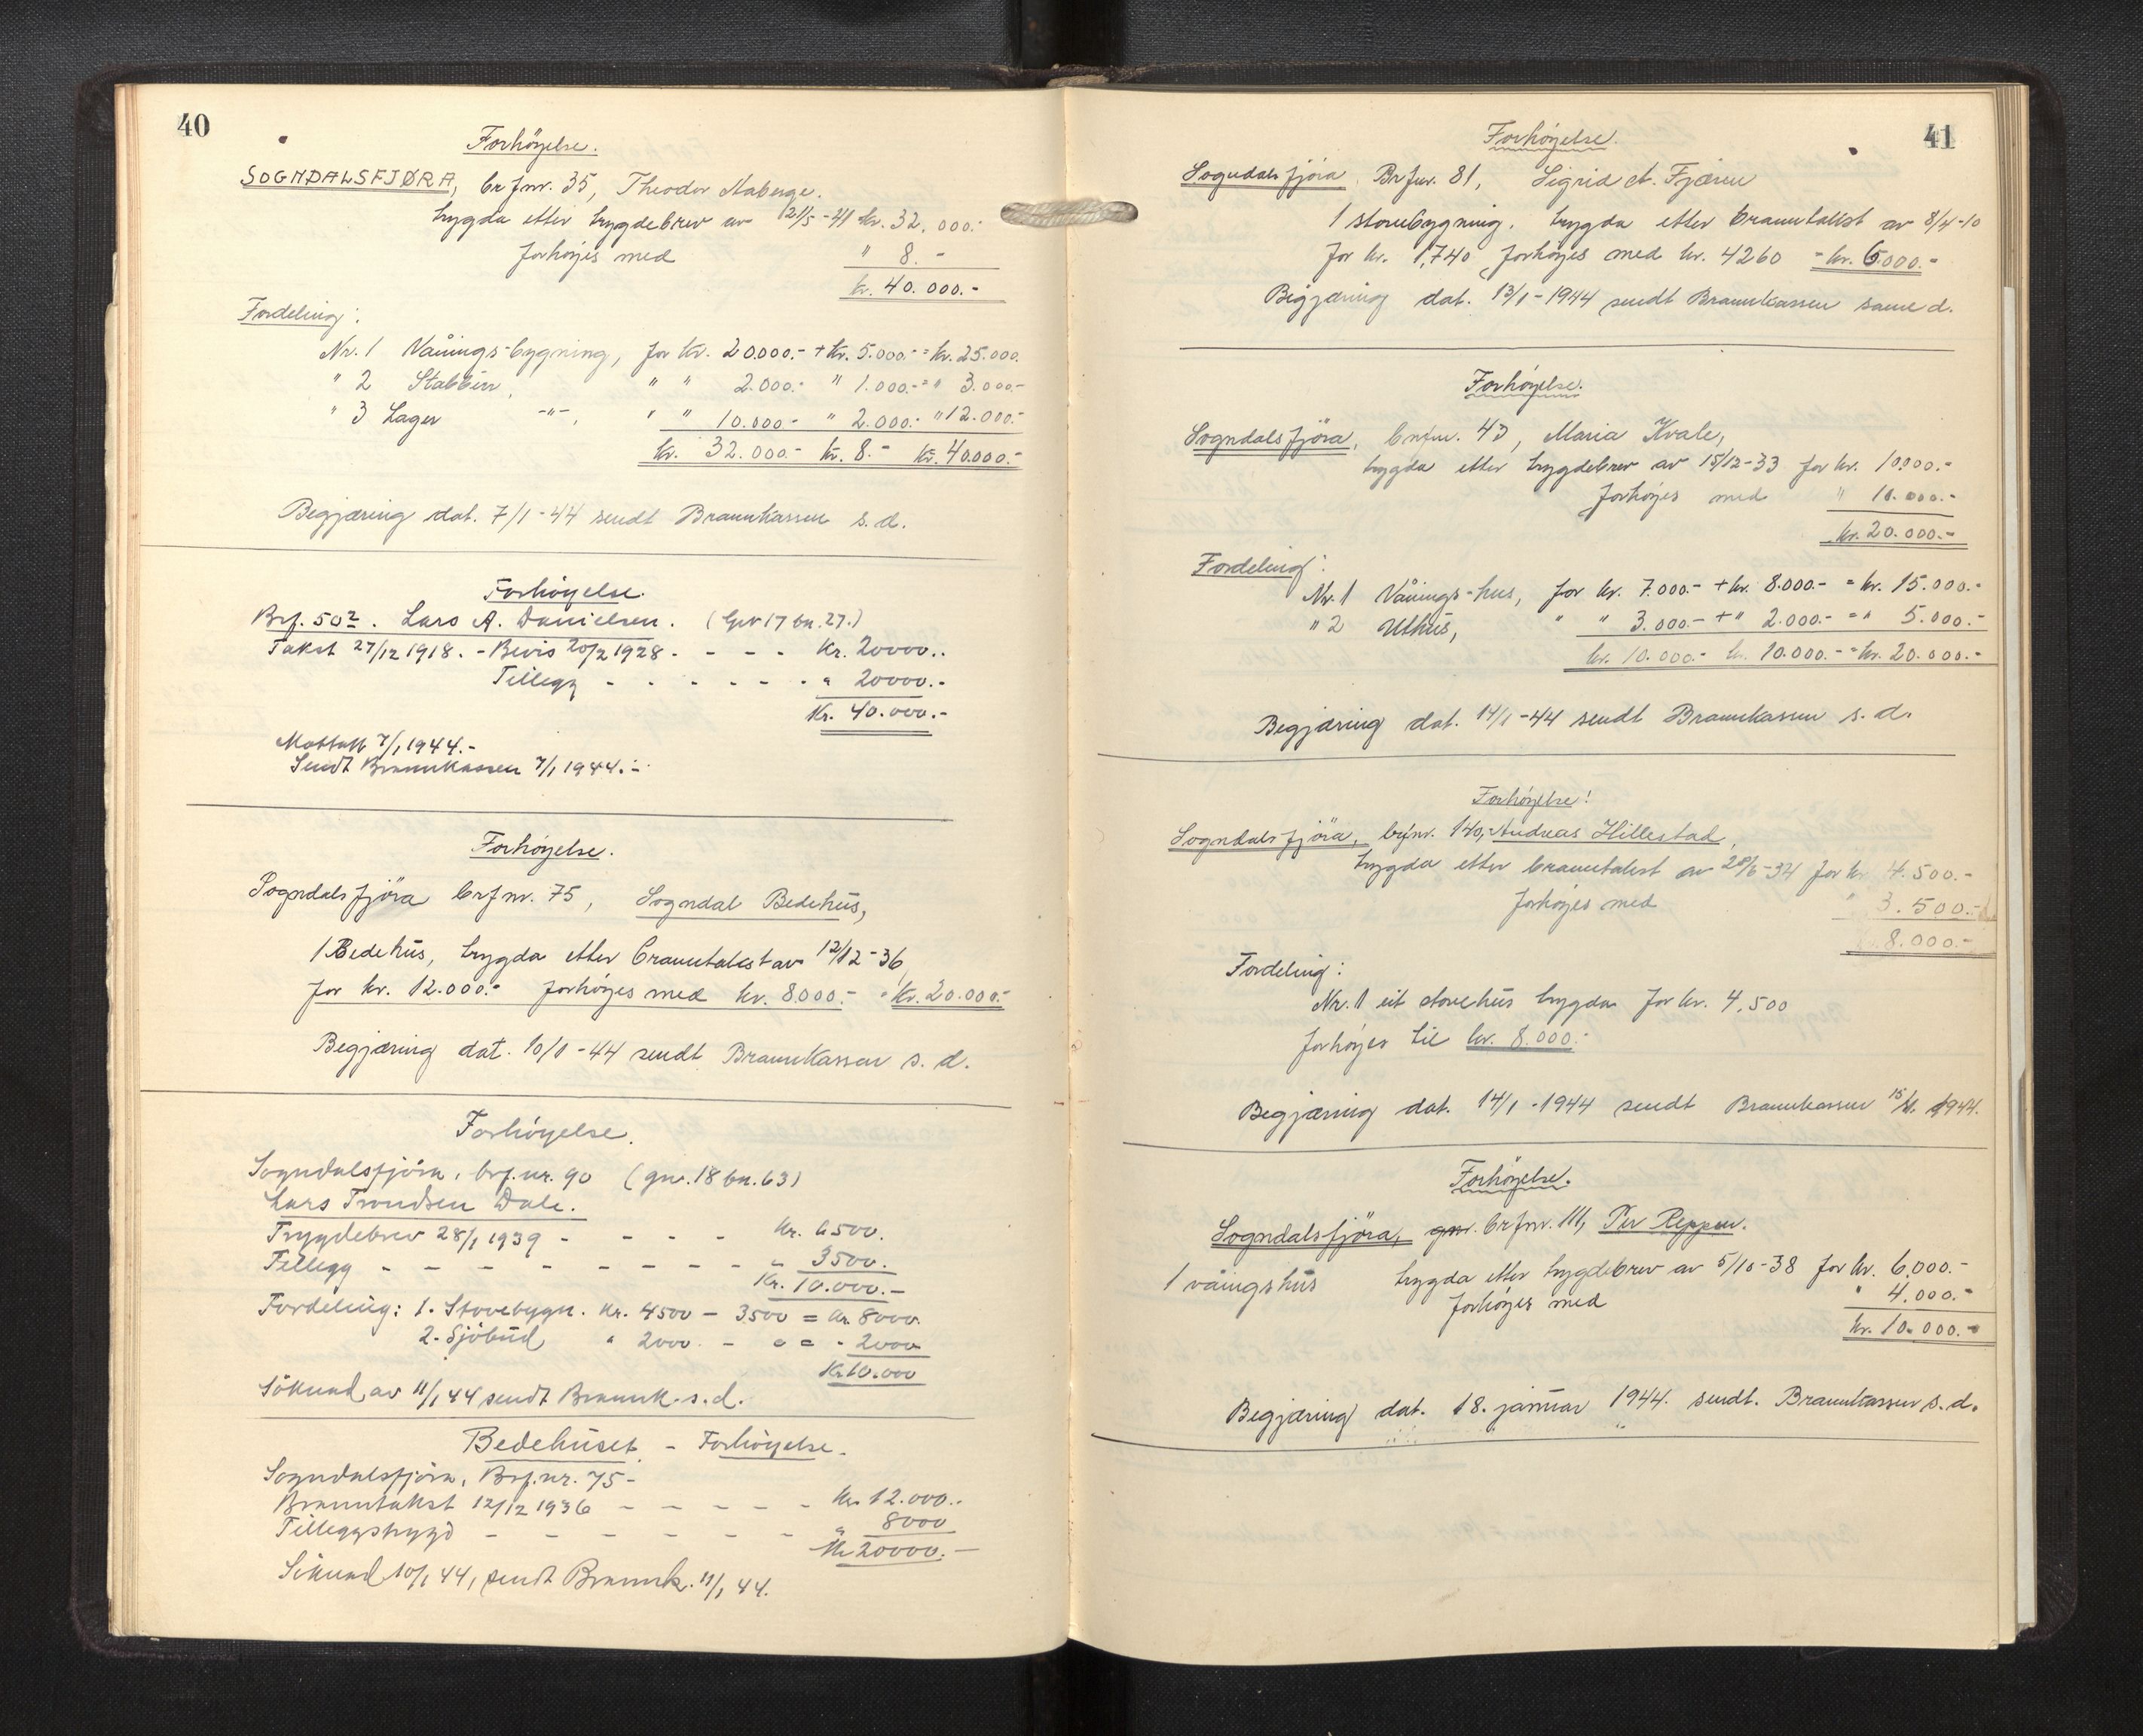 40
Forhöyelse.
SOGNDALSFJØRA, brfnr. 35, Theodor Naberge.
trygda etter trygdebrev av 21/5-41 kr. 32.000.-
forhöyes med " 8.-
kr. 40.000.-
Fordeling:
Nr. 1 Våningsbygning, for kr. 20.000.- + kr. 5.000.- = kr. 25.000.
" 2 Stabbur, " " 2.000.- " 1.000.- = " 3.000.-
" 3 Lager -"-, " " 10.000.- " 2.000.- " 12.000.-
kr. 32.000.- kr. 8.- kr. 40.000.-
Begjæring dat. 7/1-44 sendt Brannkassen s.d.
Forhöyelse.
Brf. 50². Lars A. Danielsen. (Gnr 17 bn. 27.)
Takst 27/12 1918. - Bevis 20/2 1928 - - - - Kr. 20000..
Tillegg - - - - - - - " 20000.-
Kr. 40.000.-
Mottatt 7/1 1944.-
Sendt Brannkassen 7/1 1944.-
Forhöyelse.
Sogndalsfjöra brfnr. 75, Sogndal Bedehus,
1 Bedehus, trygda etter branntakst av 12/12-36
for kr. 12.000.- forhöyes med kr. 8.000.- = kr. 20.000.-
Begjæring dat. 10/1-44 sendt Brannkassen s. d.
Forhöyelse.
Sogndalsfjöra, brf.nr. 90 (gnr. 18 bn. 63)
Lars Trondsen Dale.
Trygdebrev 28/1 1939 - - - - Kr. 6500.
Tillegg - - - - - - - - " 3500.
Kr. 10.000.-
Fordeling: 1. Stovebygn. Kr. 4500 - 3500 = Kr. 8000.
2. Sjöbud " 2000. - " = - 2000
Kr. 10.000
Söknad av 11/1 44 sendt Brannk. s.d.
Bedehuset - Forhöyelse.
Sogndalsfjöra, Brf.nr. 75 -
Branntakst 12/12 1936 - - - - - Kr. 12.000..
Tilleggstrygd - - - - - - " 8000
Kr 20000.-
Söknad 10/1 44, sendt Brannk. 11/1 44.
41
Forhöyelse.
Sogndalsfjöra Brfnr. 81, Sigrid A. Fjæren
1 stovebygning. trygda etter branntakst av 8/4-10
for kr. 1,740 forhöyes med kr. 4260 = kr. 6.000.-
Begjæring dat. 13/1-1944 sendt Brannkassen same d.
Forhöyelse.
Sogndalsfjöra, brfnr. 43, Maria Kvale,
trygda etter trygdebrev av 15/12-33 for kr. 10.000.-
forhöyes med " 10.000.-
kr. 20.000.-
Fordeling:
Nr. 1 Vånings-hus, for kr. 7.000.- + kr. 8.000.- = kr. 15.000.-
" 2 Uthus, " " 3.000.- + " 2.000.- = " 5.000.-
kr. 10.000.- kr. 10.000.- = kr. 20.000.-
Begjæring dat. 14/1-44 sendt Brannkassen s. d.
Forhöyelse!
Sogndalsfjöra, brfnr. 140, Andreas Hillestad,
trygda etter branntakst av 28/6-34 for kr 4.500.-
forhöyes med " 3.500.-
8.000.-
Fordeling:
Nr. 1 eit stovehus trygda for kr. 4,500
forhöyes til kr. 8.000.-
Begjæring dat. 14/1-1944 sendt Brannkassen 15/1. 1944.
Forhöyelse.
Sogndalsfjöra, gnr. brfnr. 111, Per Reppen.
1 våningshus trygda etter trygdebrev av 5/10-38 for kr. 6.000.-
forhöyes med " 4.000.-
kr. 10.000.-
Begjæring dat. 18. januar 1944. sendt. Brannkassen s.d.